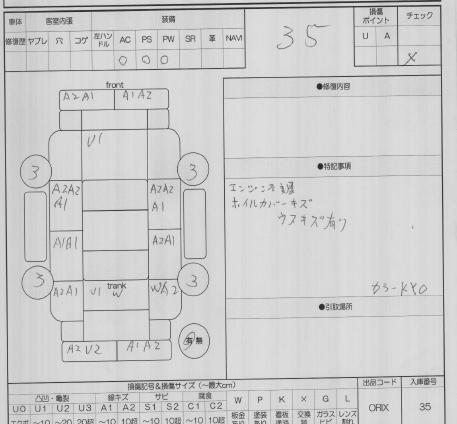 車体 客室内張 装備 損傷ポイント チェック
修復歴 ヤブレ 穴 コゲ 左ハンドル AC PS PW SR 革 NAVI U A
○ ○ ○ X
35
front
A2A1 A1A2
U1
3 3
A2A2 A2A2
A1 A1
A1A1 A2A1
3 3
A2A1 U1 trank W WA2
A2U2 A1A2
有 無
●修復内容
●特記事項
ホイルカバーキズ
ウスキズ有り
●引取場所
損傷記号&損傷サイズ (〜最大cm) 出品コード 入庫番号
凹凸・亀裂 線キズ サビ 腐食 W P K X G L
U0 U1 U2 U3 A1 A2 S1 S2 C1 C2 ORIX 35
エクボ 〜10 〜20 20超 〜10 10超 〜10 10超 〜10 10超 板金 塗装 看板 交換 ガラス レンズ